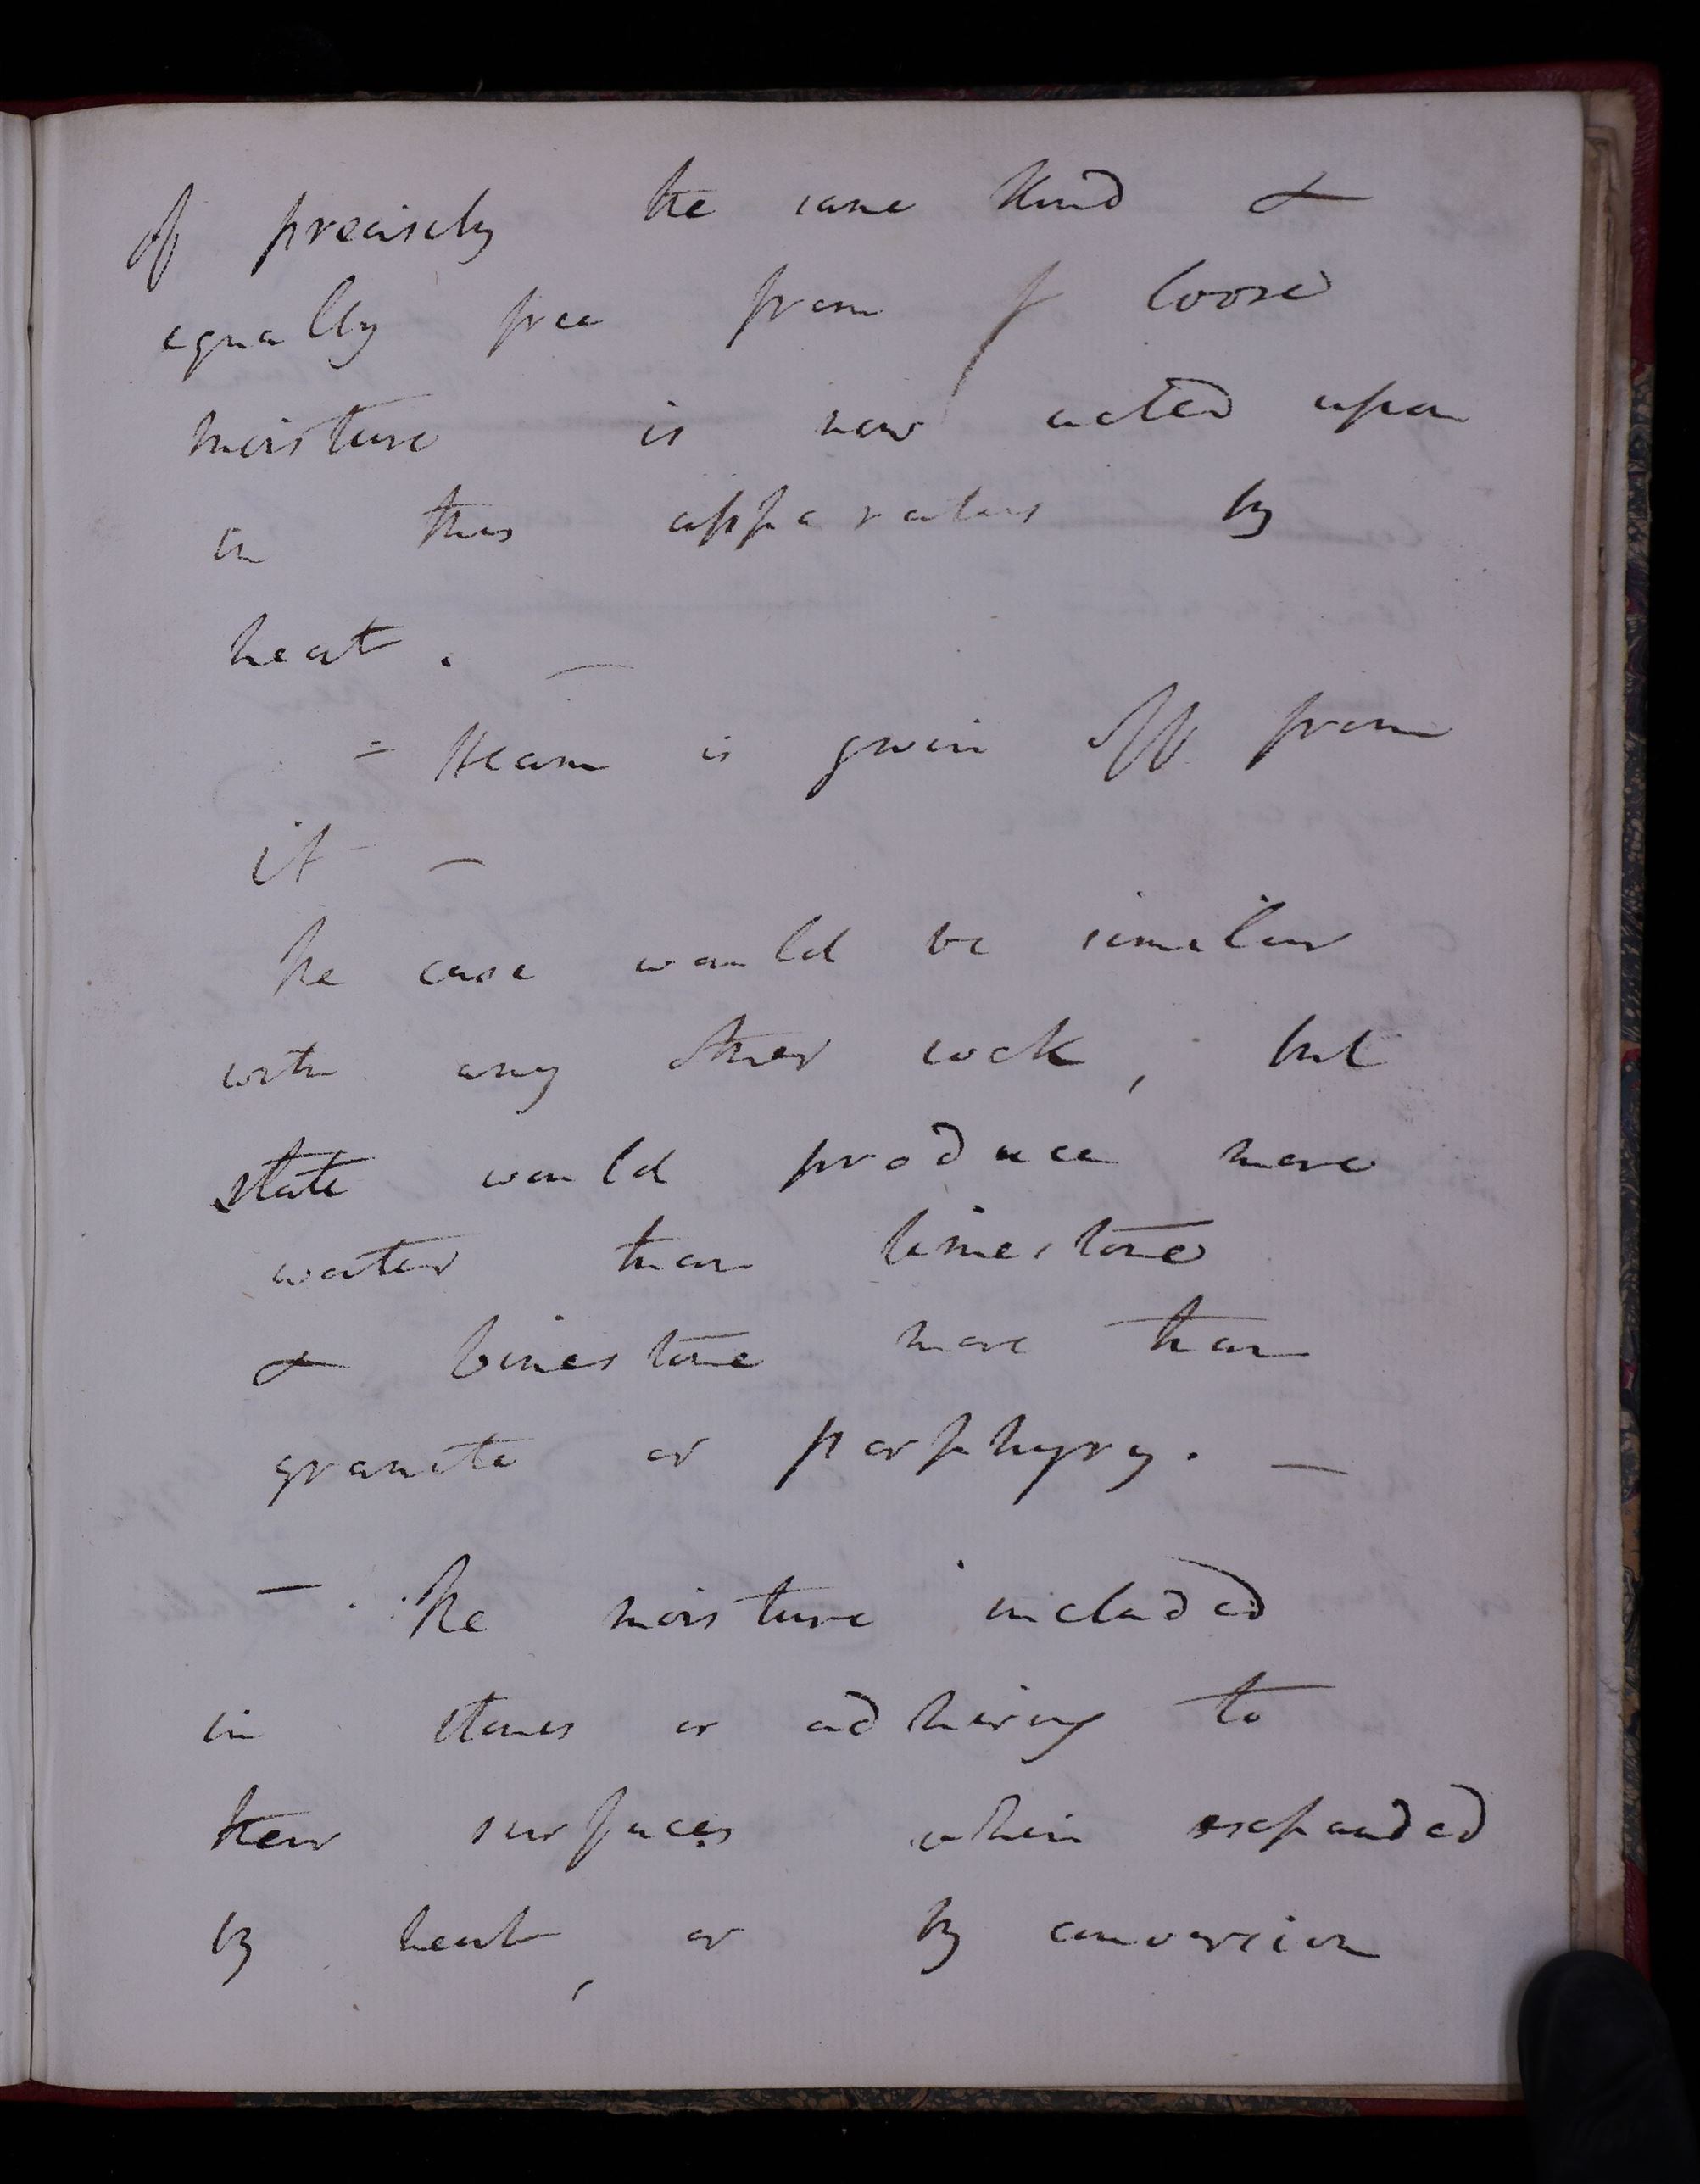 of precisely the same kind &
equally free from f loose
moisture is now acted upon
in this apparatus by
heat. —
= Steam is given off from
it —
The case would be similar
with any other rock, but
slate would produce more
water than limestone
& limestone more than
granite or porphyry. —
— . The moisture included
in stones or adhering to
their surfaces when expanded
by heat, or by conversion